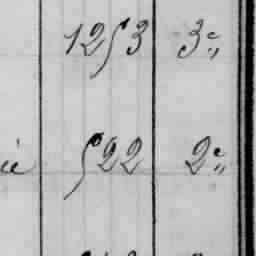 1253 3e,,
ie 522 2e,,